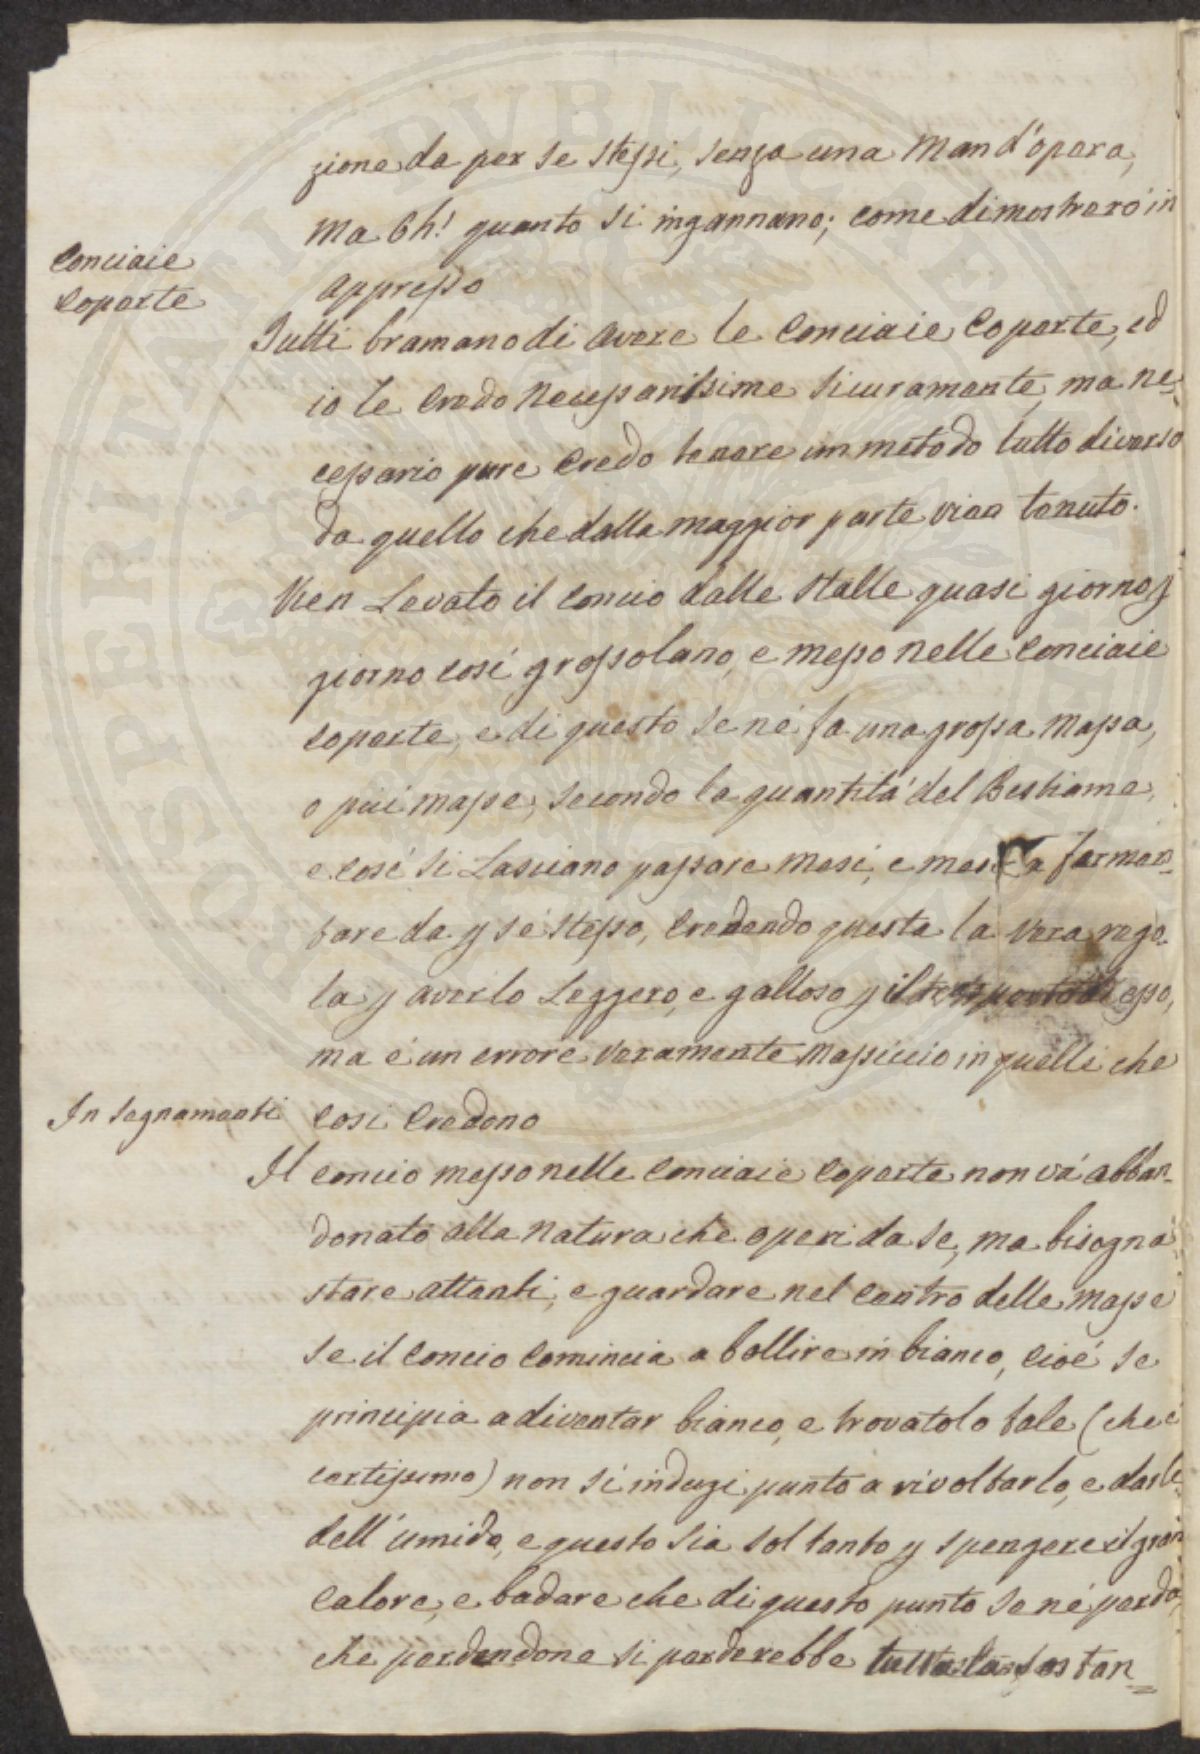 zione da per se stessi, senza una Man d'opera,
Ma Oh! quanto si ingannano; come dimostrerò in
appresso
Conciaie
coperte
Tutti bramano di avere le Conciaie Coperte, ed
io le Credo Necessarissime sicuramente, ma ne-
cessario pure Credo tenere un metodo tutto diverso
da quello che dalla maggior parte vien tenuto.
Vien Levato il Concio dalle Stalle quasi giorno p
giorno così grossolano, e messo nelle Conciaie
coperte, e di questo se né fa una grossa Massa,
o più masse, secondo la quantità del Bestiame,
e così si Lasciano passare mesi, e mesi a fermen-
tare da p sé stesso, Credendo questa la vera rego-
la p averlo Leggero, e galloso p il trasporto di esso,
ma é un errore veramente Massiccio in quelli che
così Credono
Insegnamenti
Il concio messo nelle Conciaie Coperte non vá abban-
donato alla Natura che operi da se, ma bisogna
stare attenti, e guardare nel Centro delle Masse
se il Concio Comincia a bollire in bianco, cioé se
principia a diventar bianco, e trovatolo tale (che é
certissimo) non si indugi punto a rivoltarlo, e darle
dell'umido, e questo sia sol tanto p spengere il gran
Calore, e badare che di questo punto se né perda,
che perdendone si perderebbe tutta la sostan=
PROSPERITATI PVBLICAE AVGENDAE